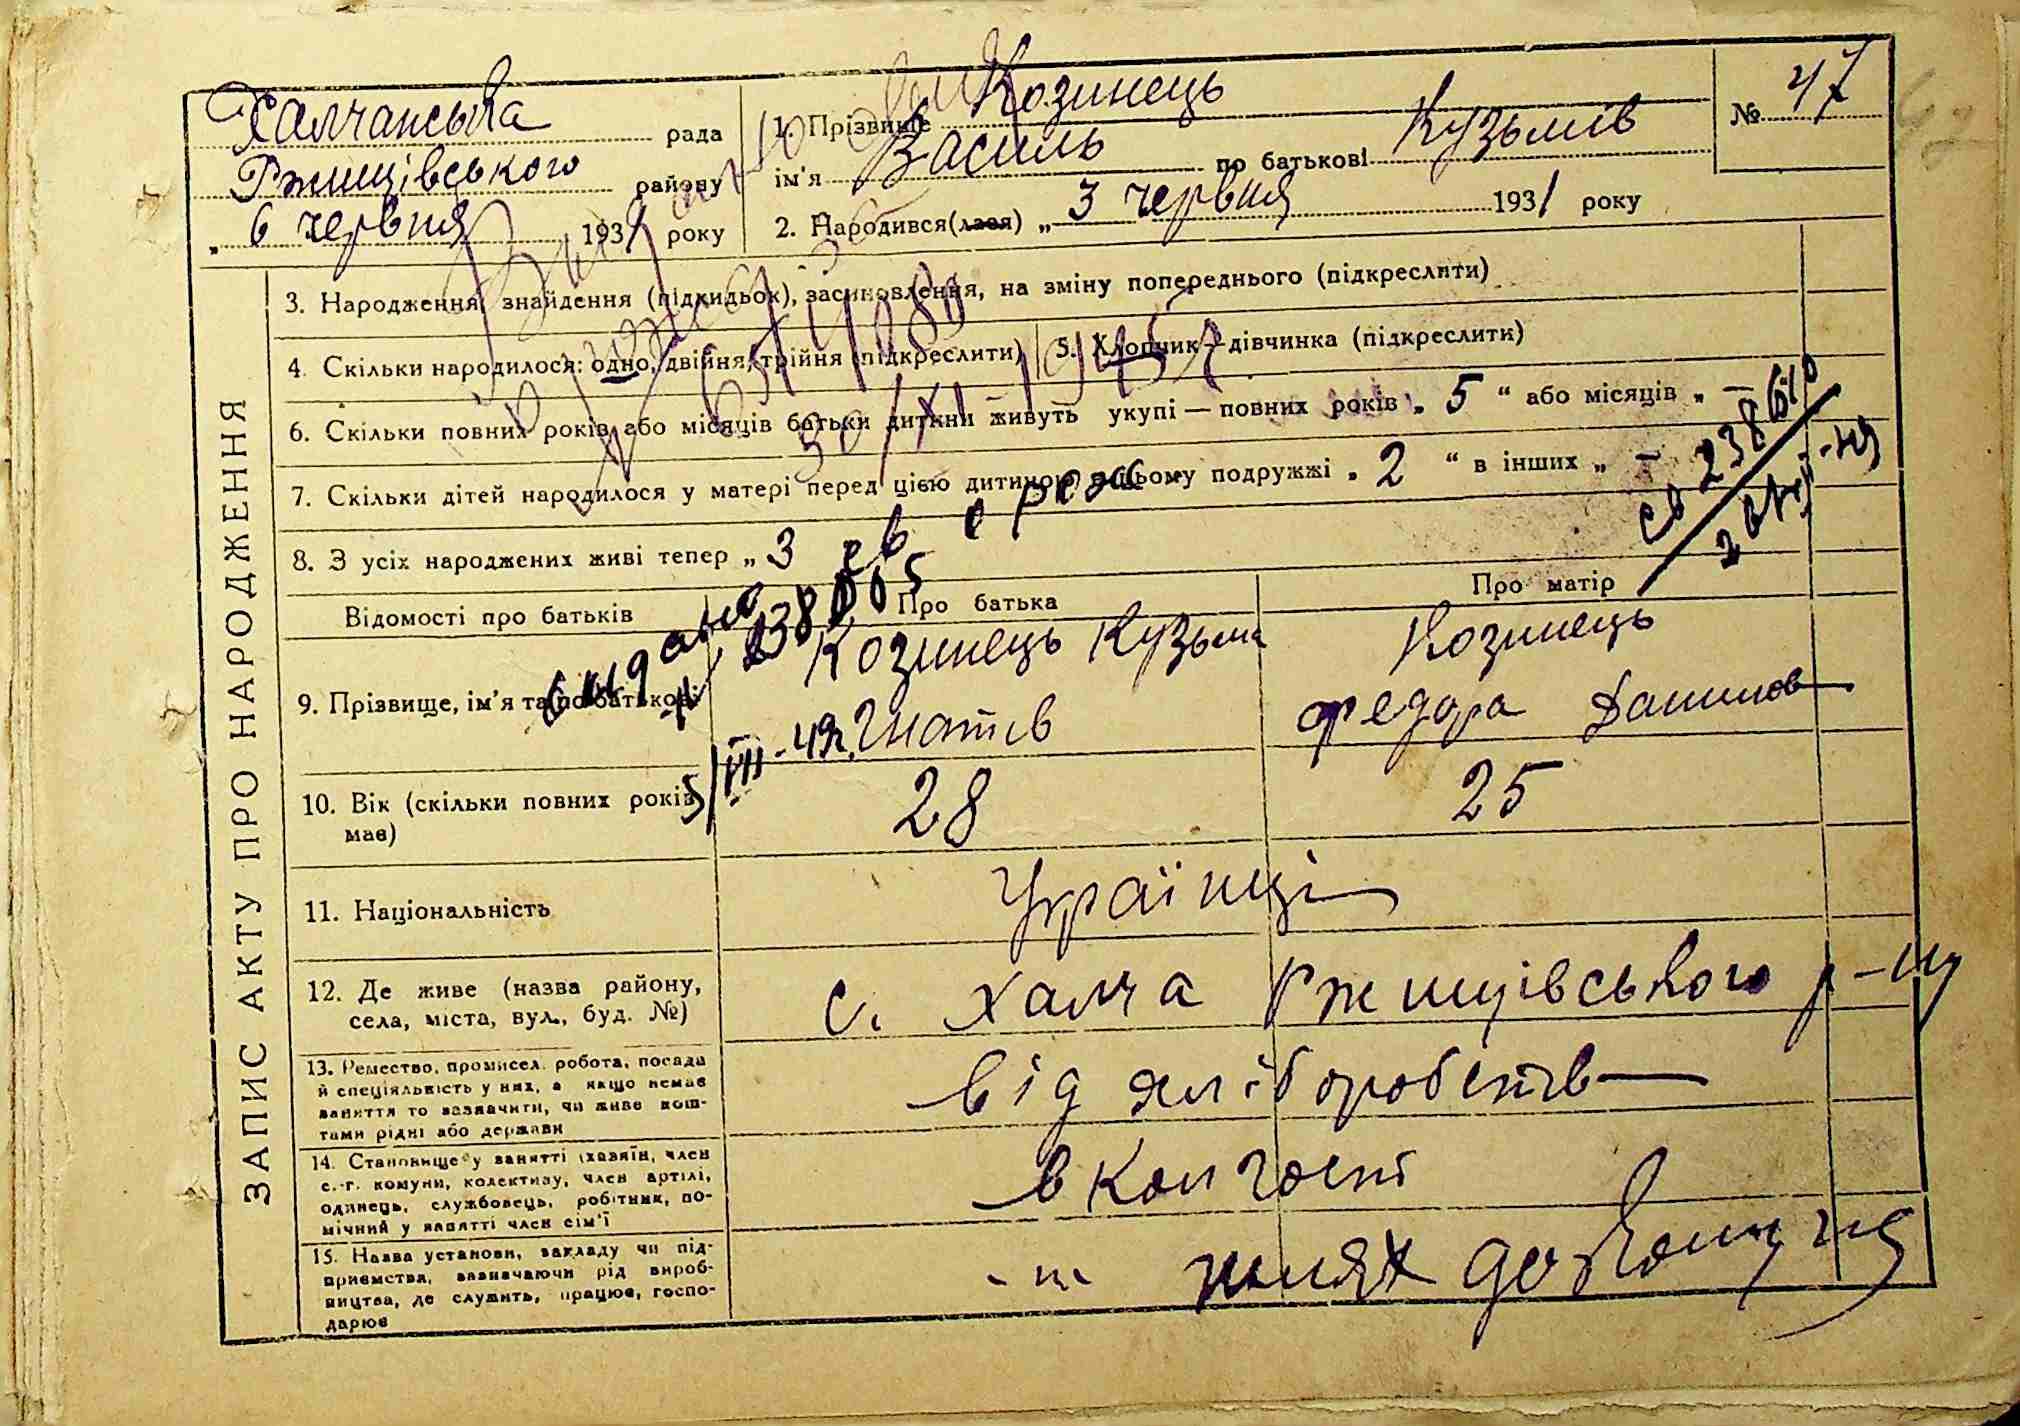 Халчанська рада
Ржищівського району
„ 6 червня 1931 року
1. Прізвище Козинець
ім'я Василь по батькові Кузьмів
2. Народився(лася) „ 3 червня 1931 року
№ 47
ЗАПИС АКТУ ПРО НАРОДЖЕННЯ
3. Народження, знайдення (підкидьок), засиновлення, на зміну попереднього (підкреслити)
4. Скільки народилося: одно, двійня, трійня (підкреслити)
5. Хлопчик—дівчинка (підкреслити)
6. Скільки повних років або місяців батьки дитини живуть укупі — повних років „ 5 “ або місяців „ —
7. Скільки дітей народилося у матері перед цією дитиною в цьому подружжі „ 2 “ в інших „ —
8. З усіх народжених живі тепер „ 3
Відомості про батьків
Про батька
Про матір
9. Прізвище, ім'я та по батькові
Козинець Кузьма
Гнатів
Козинець
Федора Данилов
5/VII-49г.
10. Вік (скільки повних років
має)
28
25
11. Національність
Українці
12. Де живе (назва району,
села, міста, вул., буд. №)
с. Халча Ржищівського р-ну
13. Ремество, промисел, робота, посада
й спеціяльність у них, а якщо немає
заняття то зазначити, чи живе кош-
тами рідні або держави
від хліборобств
14. Становище у занятті (хазяїн, член
с.-г. комуни, колективу, член артілі,
одинець, службовець, робітник, по-
мічний у занятті член сім'ї
в колгоспі
15. Назва установи, закладу чи під-
приємства, зазначаючи рід вироб-
ництва, де служить, працює, госпо-
дарює
шлях до